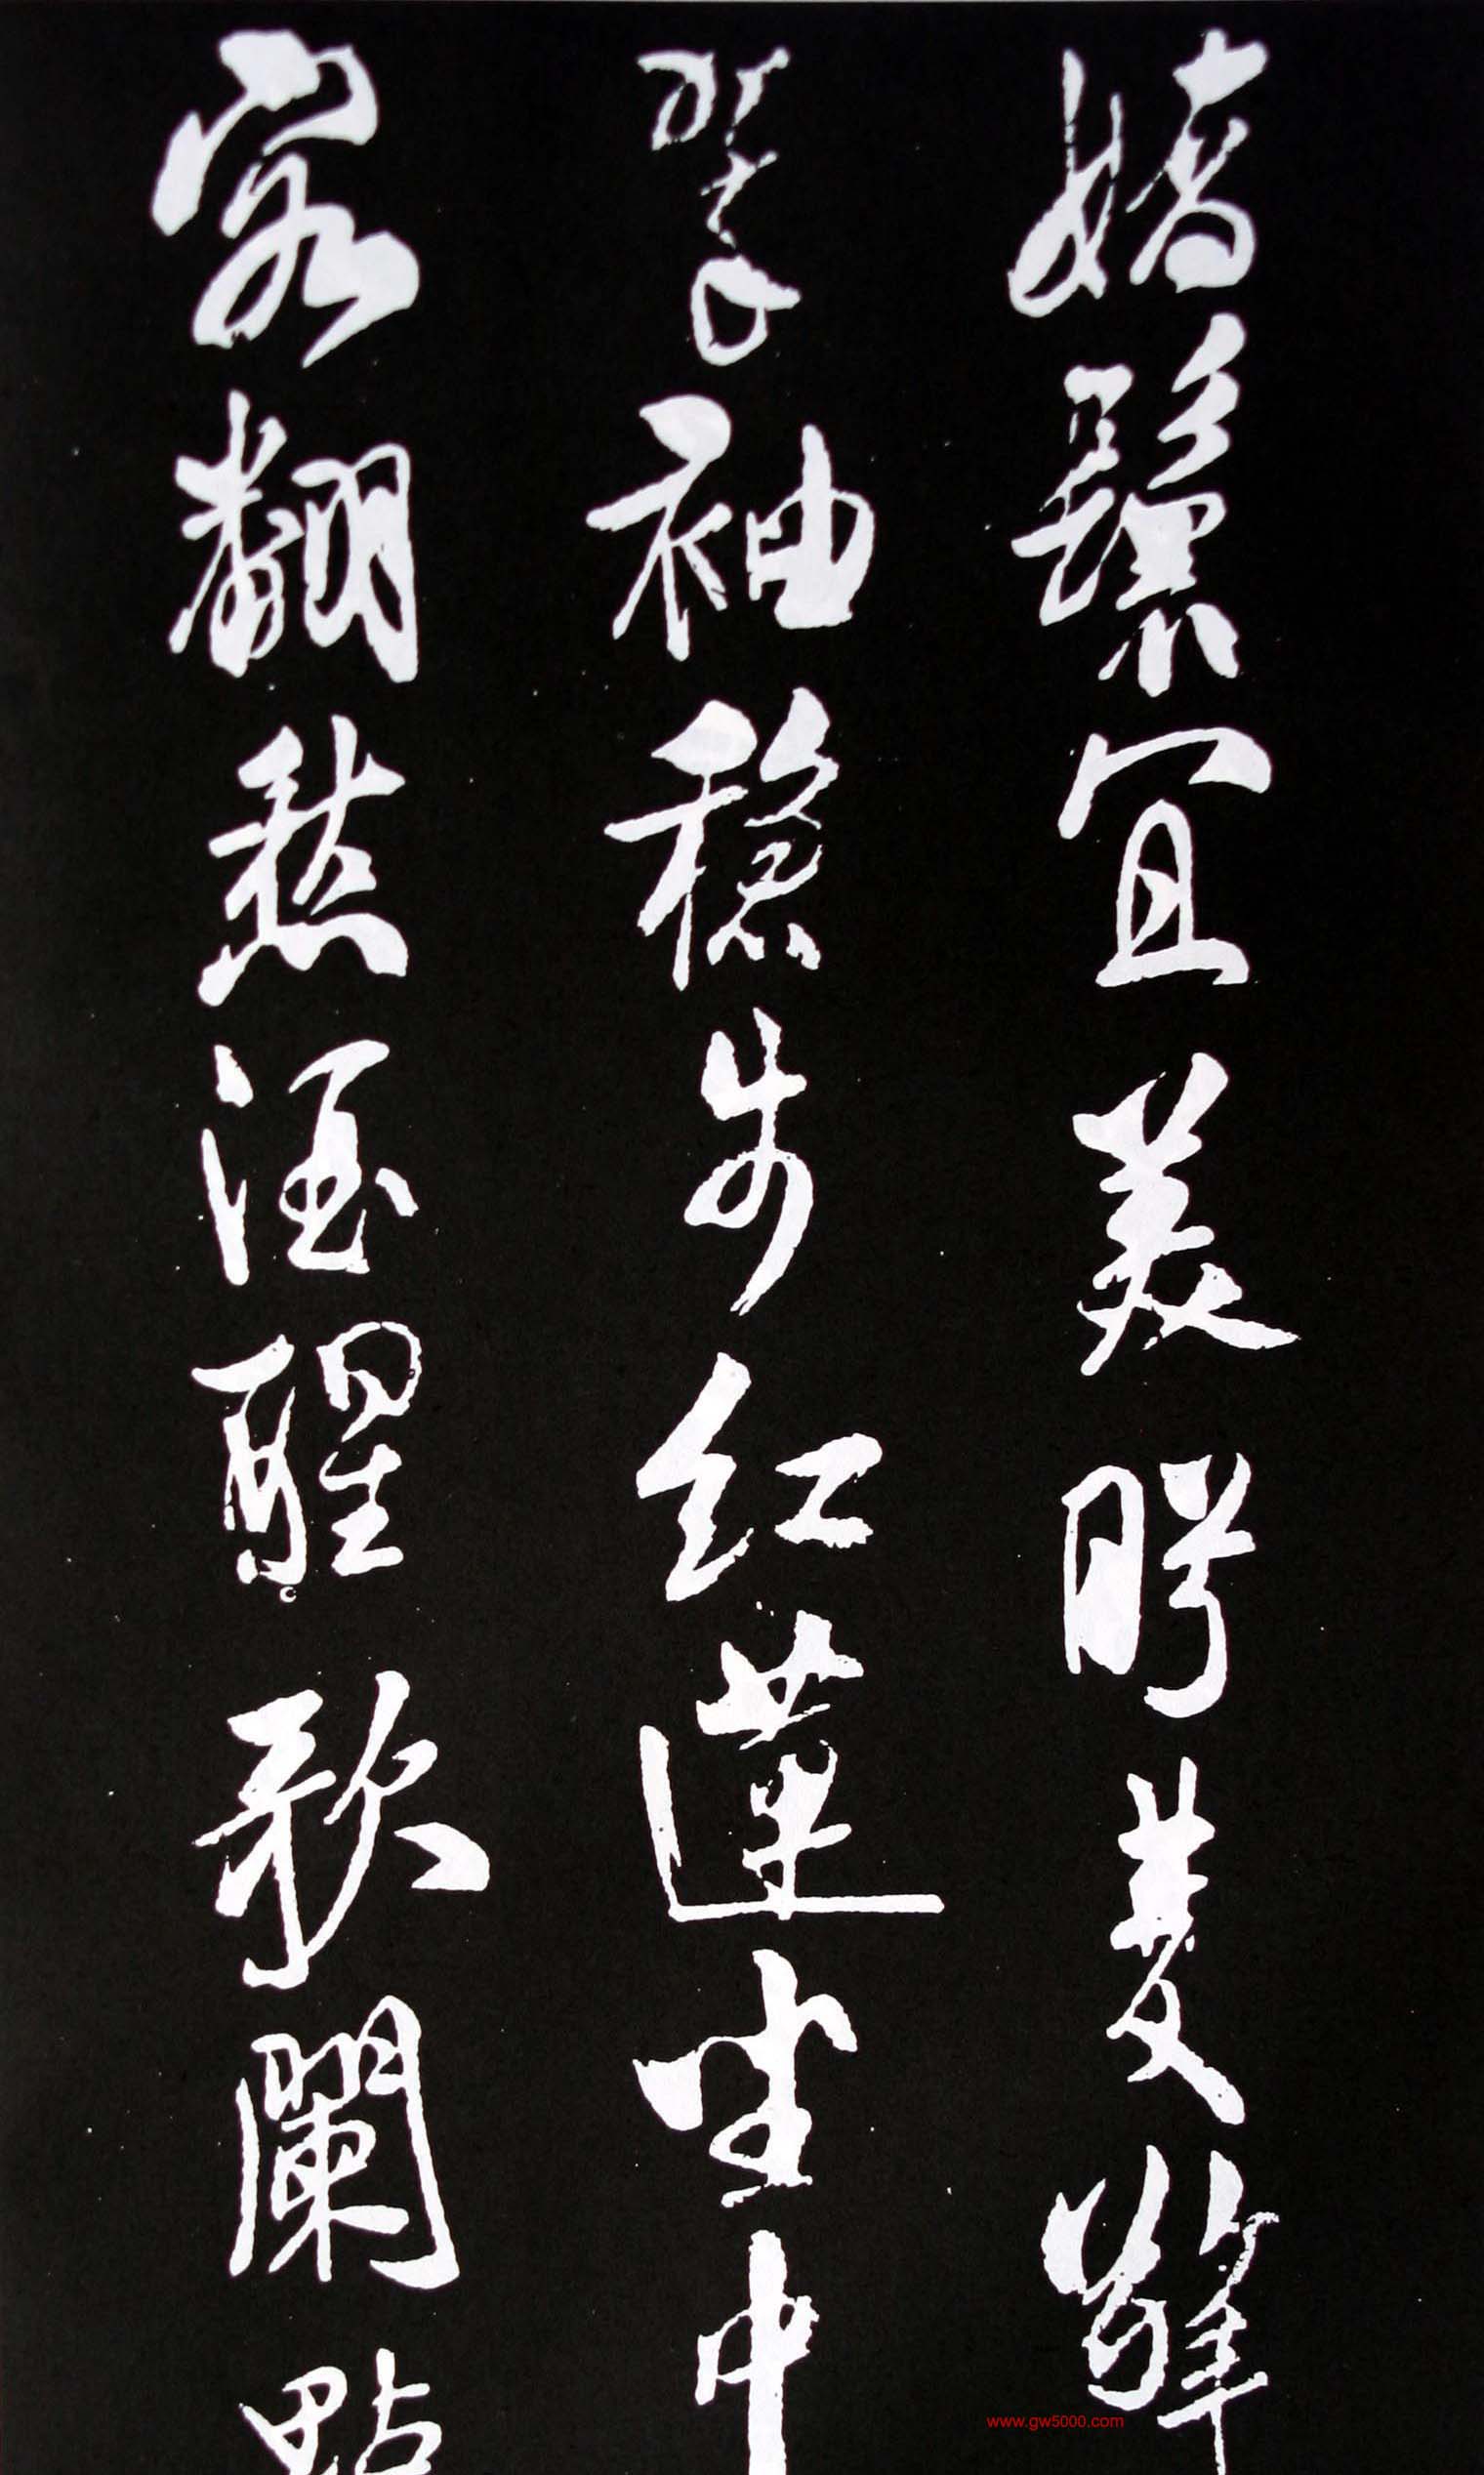 嬌鬟宜美盼雙擎
翠袖穩步紅蓮坐中
客翻愁酒醒歌闌點
www.gw5000.com